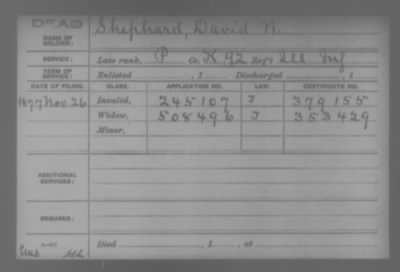 DEAD
NAME OF SOLDIER: Shephard, David N.
SERVICE: Late rank, P Co. K, 92 Reg't Ill Inf
TERM OF SERVICE: Enlisted , 1 Discharged , 1
DATE OF FILING. CLASS. APPLICATION NO. LAW. CERTIFICATE NO.
1877 Nov. 26 Invalid, 245107 J 379155
Widow, 508496 J 353429
Minor,
ADDITIONAL SERVICES:
REMARKS:
Died , 1 , at